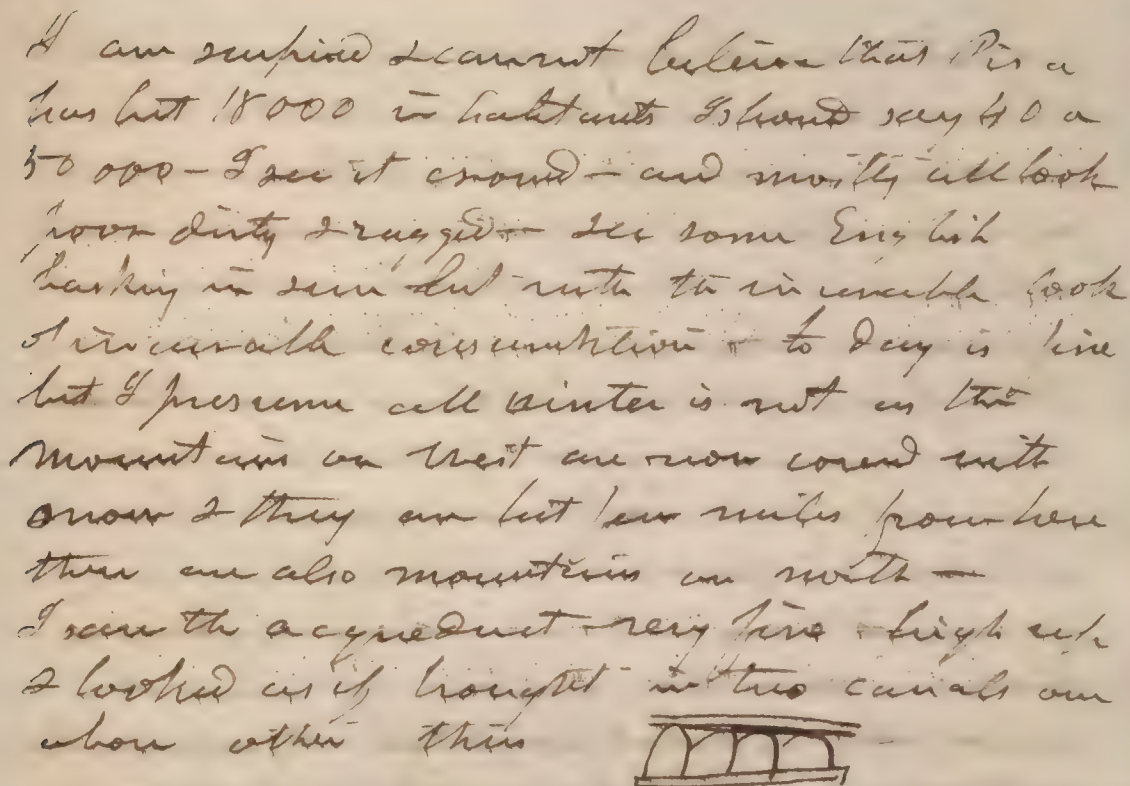 I am surprised & cannot believe that Pisa
has but 18000 inhabitants I should say 40 a
50 000 - I see it crowd - and mostly all look
poor dirty & ragged - see some English
basking in sun but with the incurable look
of incurable consumption - to day is fine
but I presume all winter is not as the
mountains on West are now coverd with
snow & they are but few miles from here
there are also mountains on north -
I saw the acqueduct - very fine - high up
& looked as if brought in two canals one
above other thus